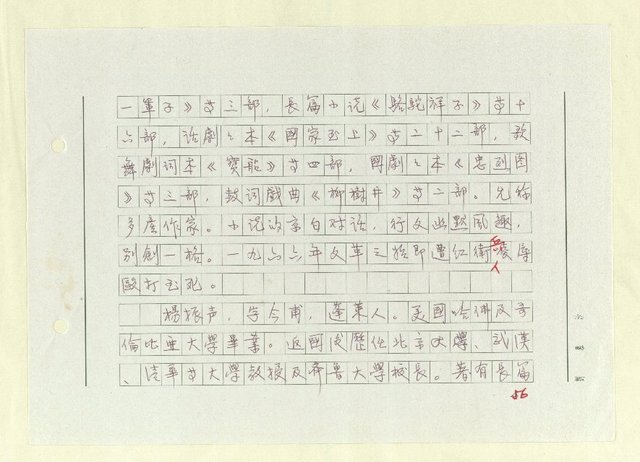 一輩子》等三部，長篇小说《駱駝祥子》等十
六部，话劇本《國家至上》等二十二部，歌
舞劇詞本《寶船》等四部，國劇本《忠烈图
》等三部，鼓词戲曲《柳樹井》等二部。允称
多産作家。小说的京白对话，行文幽默風趣，
别創一格。一九六六年文革之始即遭红衛兵凌辱
毆打至死。
楊振声，字今甫，蓬莱人。美國哈佛及哥
倫比亚大學畢業。返國後歷任北京大學、武漢
、清華等大學教授及齐鲁大學校長。著有長篇
56